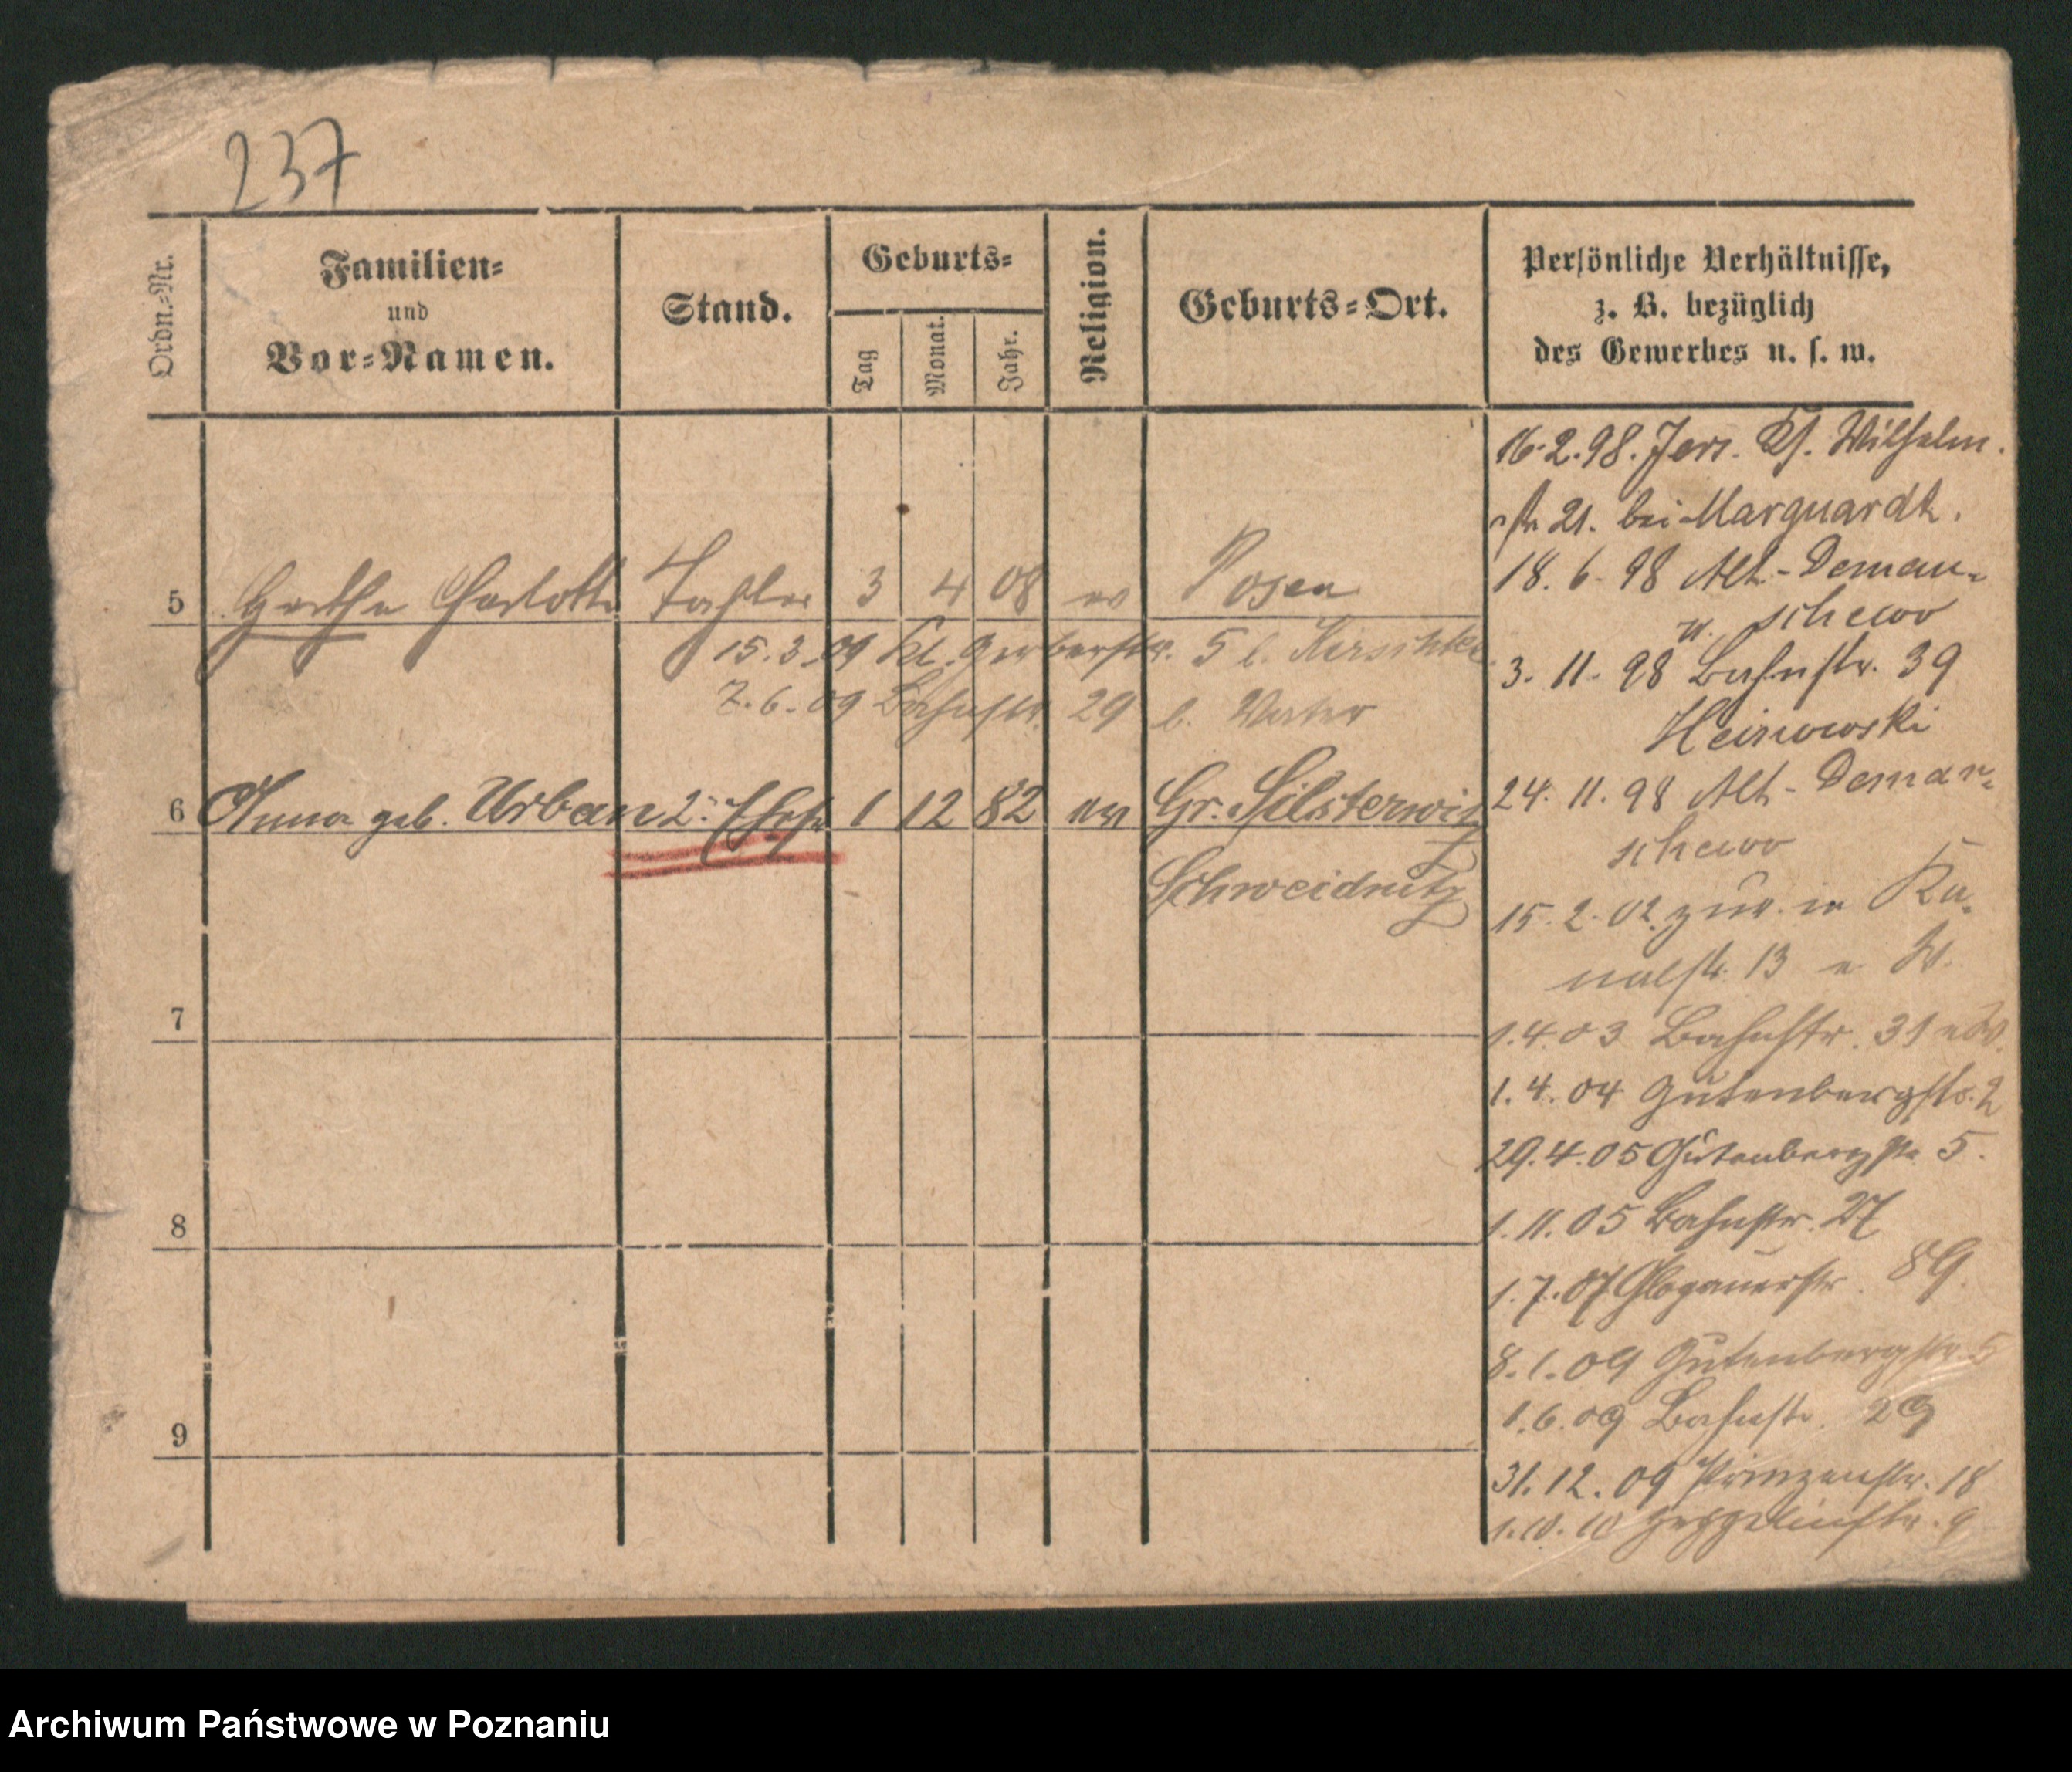 237
Ordn.-Nr.
Familien-
und
Vor-Namen.
Stand.
Geburts-
Tag
Monat.
Jahr.
Religion.
Geburts-Ort.
Persönliche Verhältnisse,
z. B. bezüglich
des Gewerbes u. s. w.
5 Charlotte 3 4 08 ev Posen
15.3.09 Kl. Gerberstr. 5 b.
7.6.09 Bahnstr. 29 b. Vater
6 Anna geb. Urban 2. Ehefr 1 12 82 ev Gr. Silsterwitz
Schweidnitz
7
8
9
16.2.98. Jers. Wilhelm
str 21. bei Marquardt.
18.6.98 Alt-Deman-
schewo
3.11.98 Bahnstr. 39
24.11.98 Alt-Deman-
schewo
15.2.02 zur. in Ka-
nalstr. 13
1.4.03 Bahnstr. 31
1.4.04 Gutenbergstr. 2
29.4.05 Gutenbergstr. 5.
1.11.05 Bahnstr. 27
1.7.07 Glogauerstr. 89.
8.1.09 Gutenbergstr. 5
1.6.09 Bahnstr. 29
31.12.09 Prinzenstr. 18
1.10.10 Zeppelinstr. 9
Archiwum Państwowe w Poznaniu